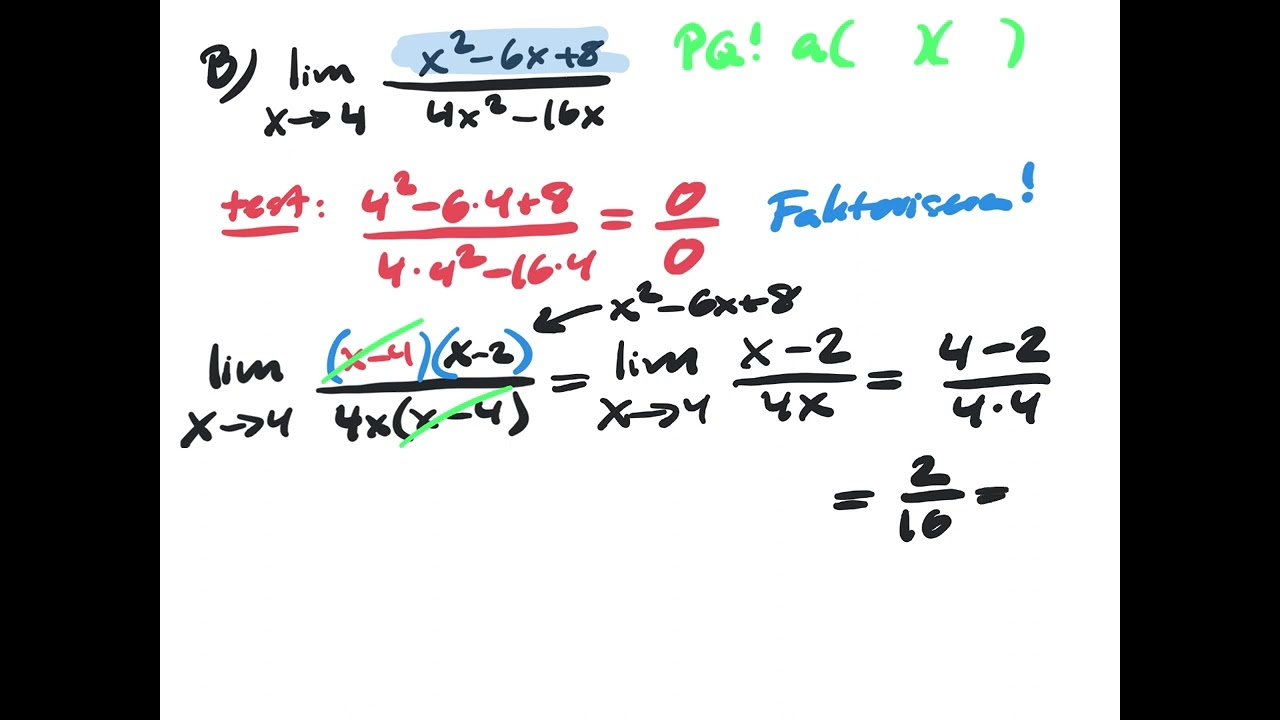 B) lim x→4 (x² - 6x + 8)/(4x² - 16x) PQ! a( )( )
test: (4² - 6·4 + 8)/(4·4² - 16·4) = 0/0 Faktoriseren!
x² - 6x + 8
lim x→4 ((x-4)(x-2))/(4x(x-4)) = lim x→4 (x-2)/(4x) = (4-2)/(4·4)
= 2/16 =